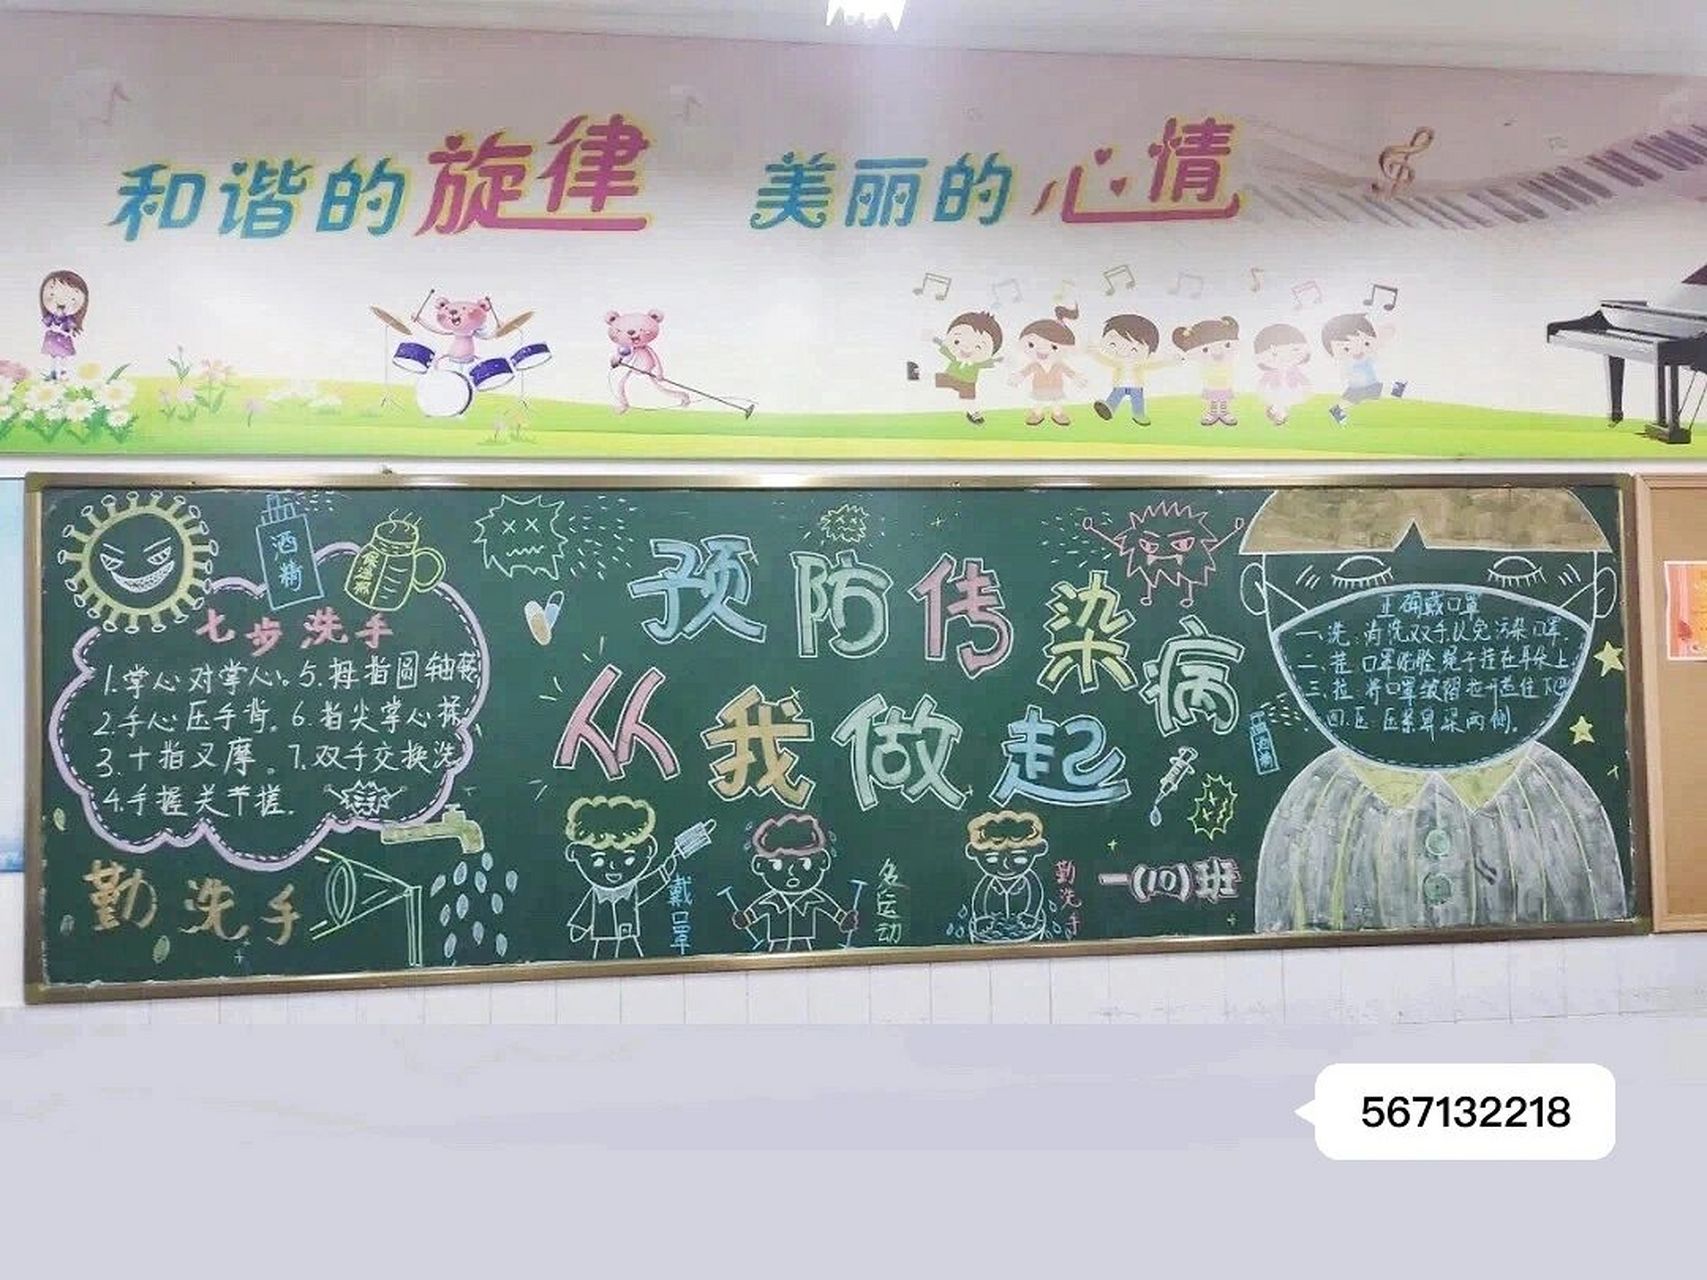 和谐的旋律 美丽的心情
酒精
保温杯
预防传染病
从我做起
七步洗手
1.掌心对掌心。5.拇指圆轴转
2.手心压手背。6.指尖掌心揉
3.十指叉摩。7.双手交换洗
4.手握关节搓.
勤洗手
正确戴口罩
一、洗:清洗双手以免污染口罩.
二、挂 口罩贴脸 绳子挂在耳朵上
三、拉 将口罩皱褶拉开盖住下巴
四、压 压紧鼻梁两侧。
酒精
戴口罩
多运动
勤洗手
一(10)班
567132218